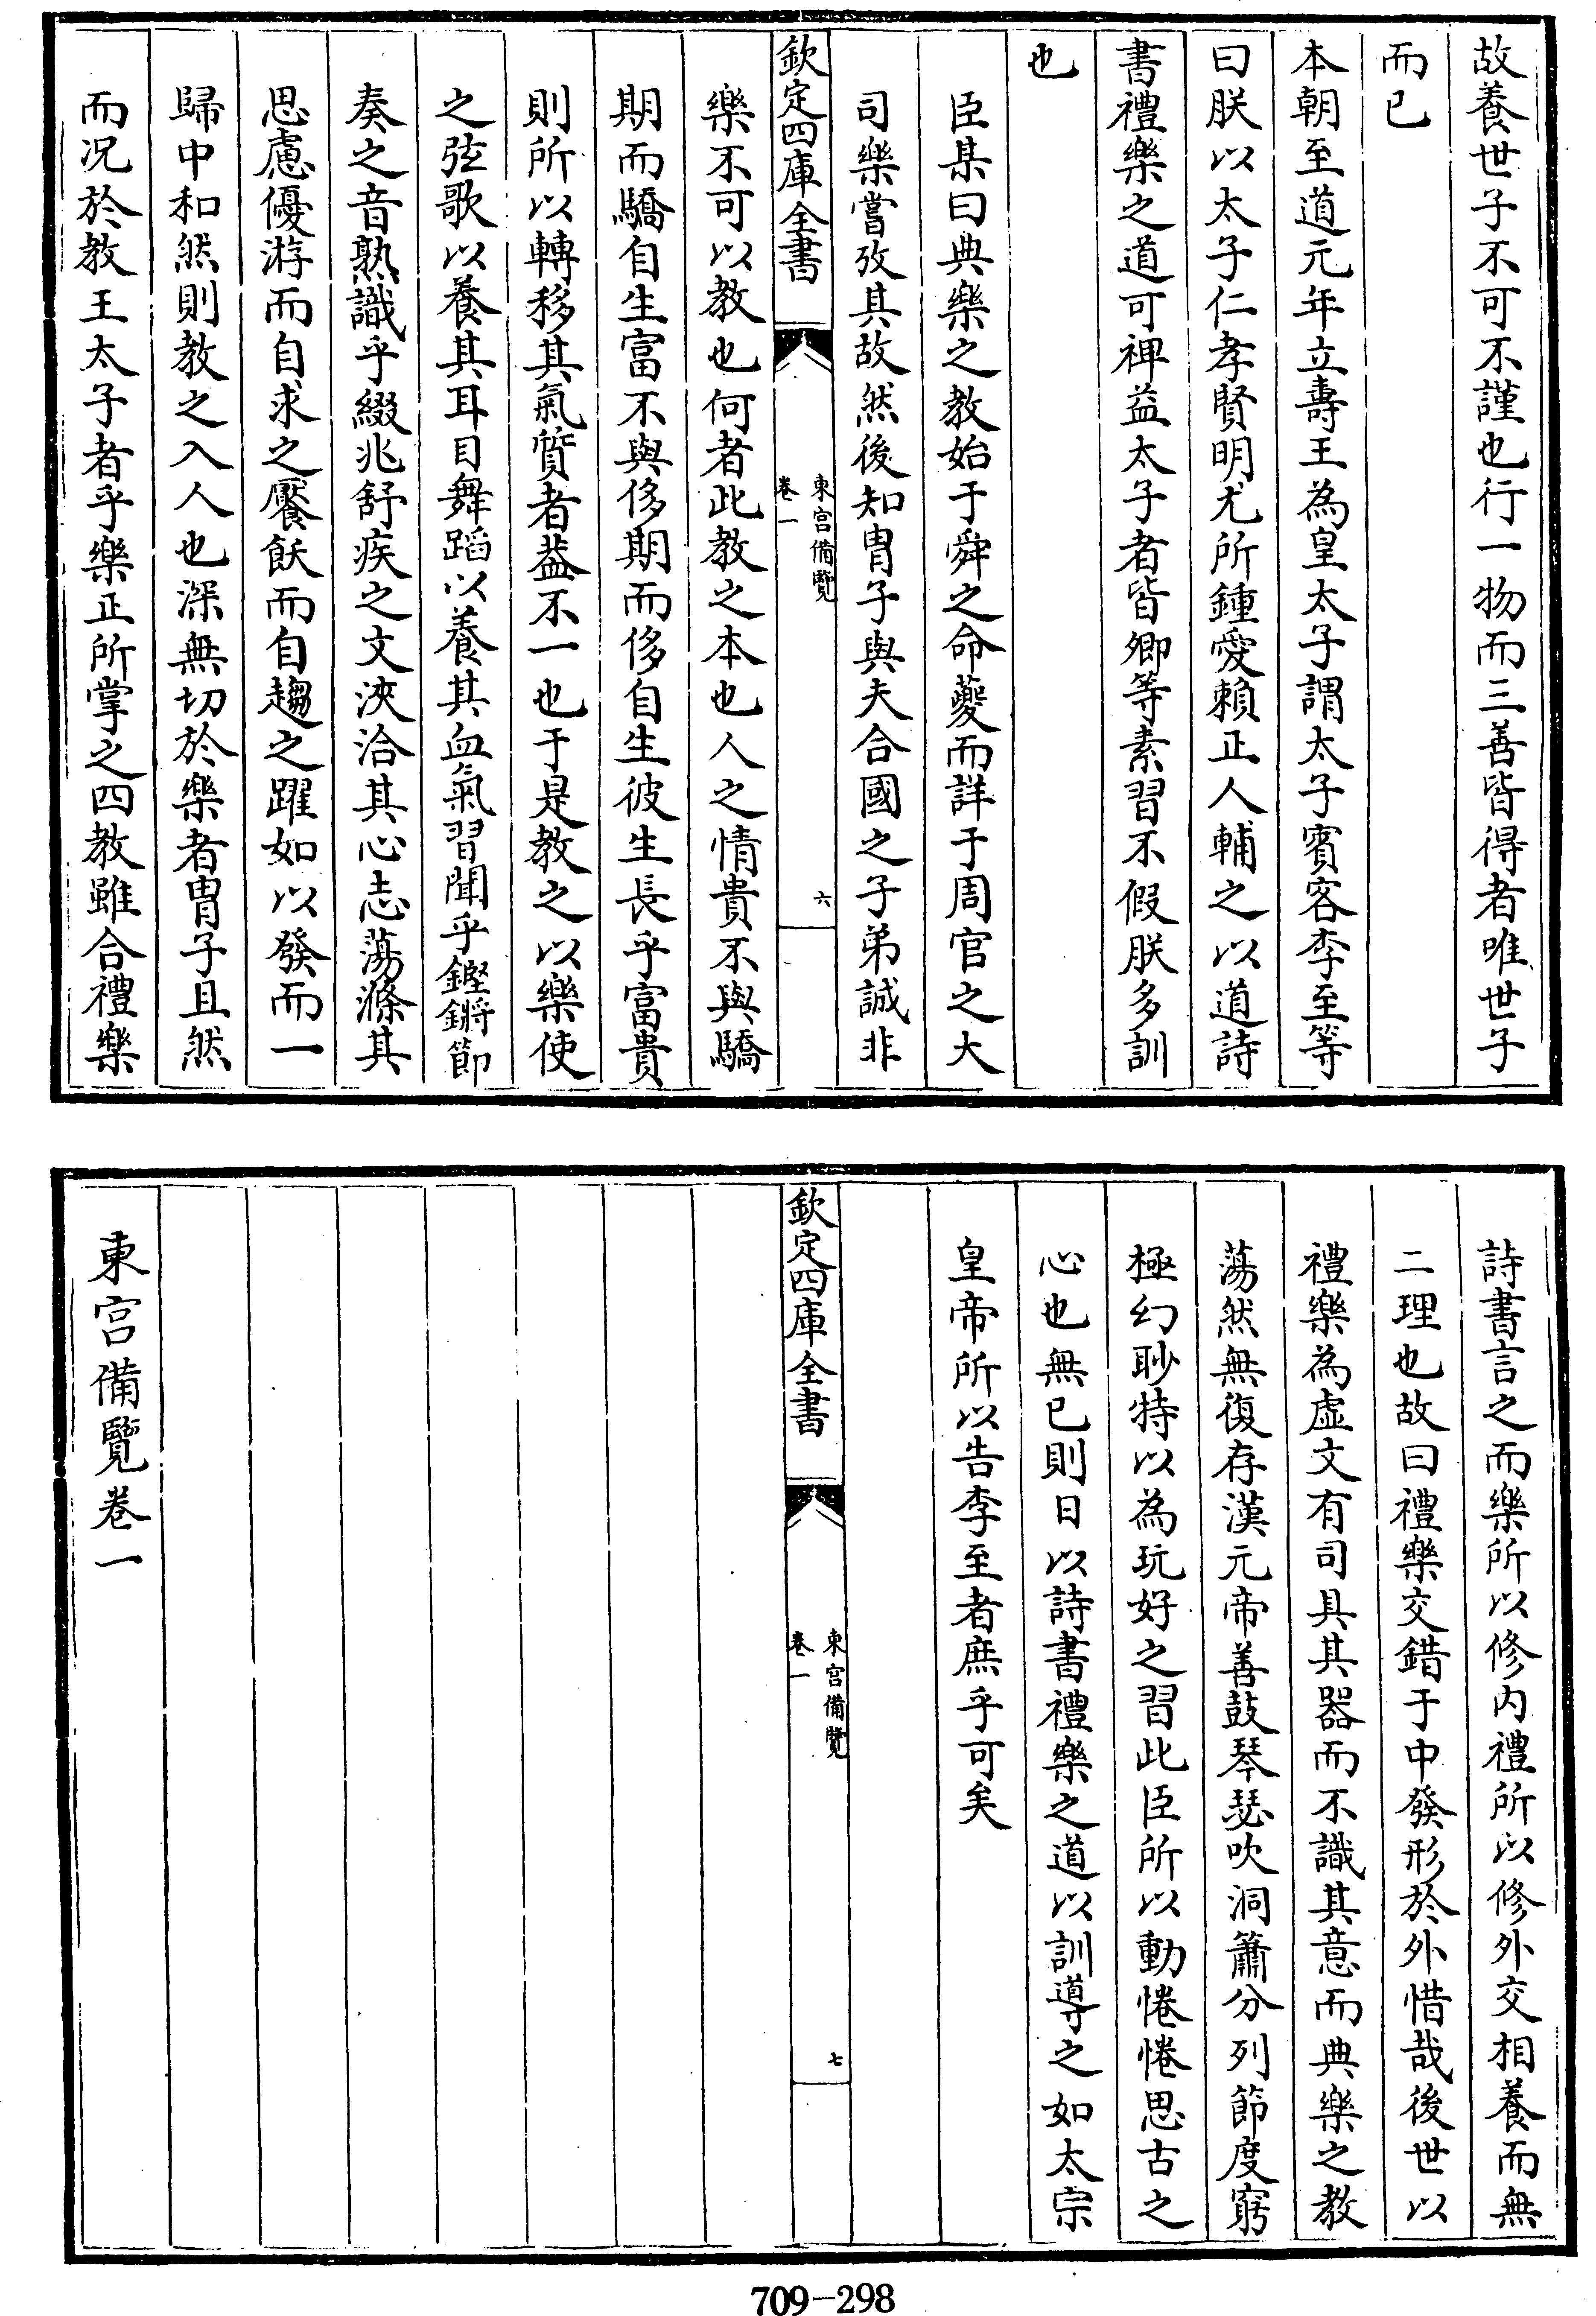 故養世子不可不謹也行一物而三善皆得者唯世子
而已
本朝至道元年立壽王為皇太子謂太子賓客李至等
曰朕以太子仁孝賢明尤所鍾愛賴正人輔之以道詩
書禮樂之道可裨益太子者皆卿等素習不假朕多訓
也
臣某曰典樂之教始于舜之命夔而詳于周官之大
司樂嘗攷其故然後知胄子與夫合國之子弟誠非
欽定四庫全書
東宫備覽
卷一
六
樂不可以教也何者此教之本也人之情貴不與驕
期而驕自生富不與侈期而侈自生彼生長乎富貴
則所以轉移其氣質者葢不一也于是教之以樂使
之弦歌以養其耳目舞蹈以養其血氣習聞乎鏗鏘節
奏之音熟識乎綴兆舒疾之文浹洽其心志蕩滌其
思慮優游而自求之饜飫而自趨之躍如以發而一
歸中和然則教之入人也深無切於樂者胄子且然
而况於教王太子者乎樂正所掌之四教雖合禮樂
詩書言之而樂所以修内禮所以修外交相養而無
二理也故曰禮樂交錯于中發形於外惜哉後世以
禮樂為虚文有司具其器而不識其意而典樂之教
蕩然無復存漢元帝善鼓琴瑟吹洞簫分列節度窮
極幻眇特以為玩好之習此臣所以動惓惓思古之
心也無已則日以詩書禮樂之道以訓導之如太宗
皇帝所以告李至者庶乎可矣
欽定四庫全書
東宫備覽
卷一
七
東宫備覽卷一
709-298